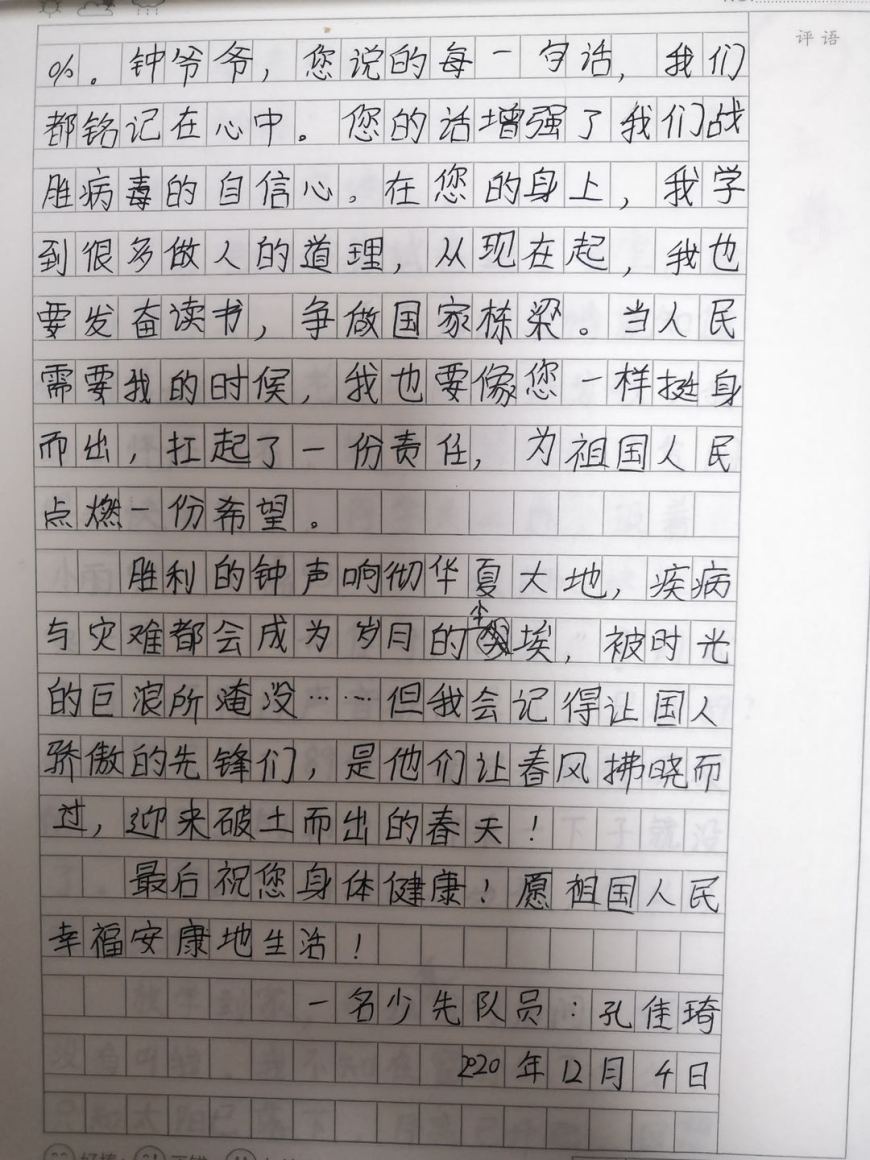 评语
%。钟爷爷，您说的每一句话，我们
都铭记在心中。您的话增强了我们战
胜病毒的自信心。在您的身上，我学
到很多做人的道理，从现在起，我也
要发奋读书，争做国家栋梁。当人民
需要我的时候，我也要像您一样挺身
而出，扛起了一份责任，为祖国人民
点燃一份希望。
胜利的钟声响彻华夏大地，疾病
与灾难都会成为岁月的尘埃，被时光
的巨浪所淹没……但我会记得让国人
骄傲的先锋们，是他们让春风拂晓而
过，迎来破土而出的春天！
最后祝您身体健康！愿祖国人民
幸福安康地生活！
一名少先队员：孔佳琦
2020年12月4日